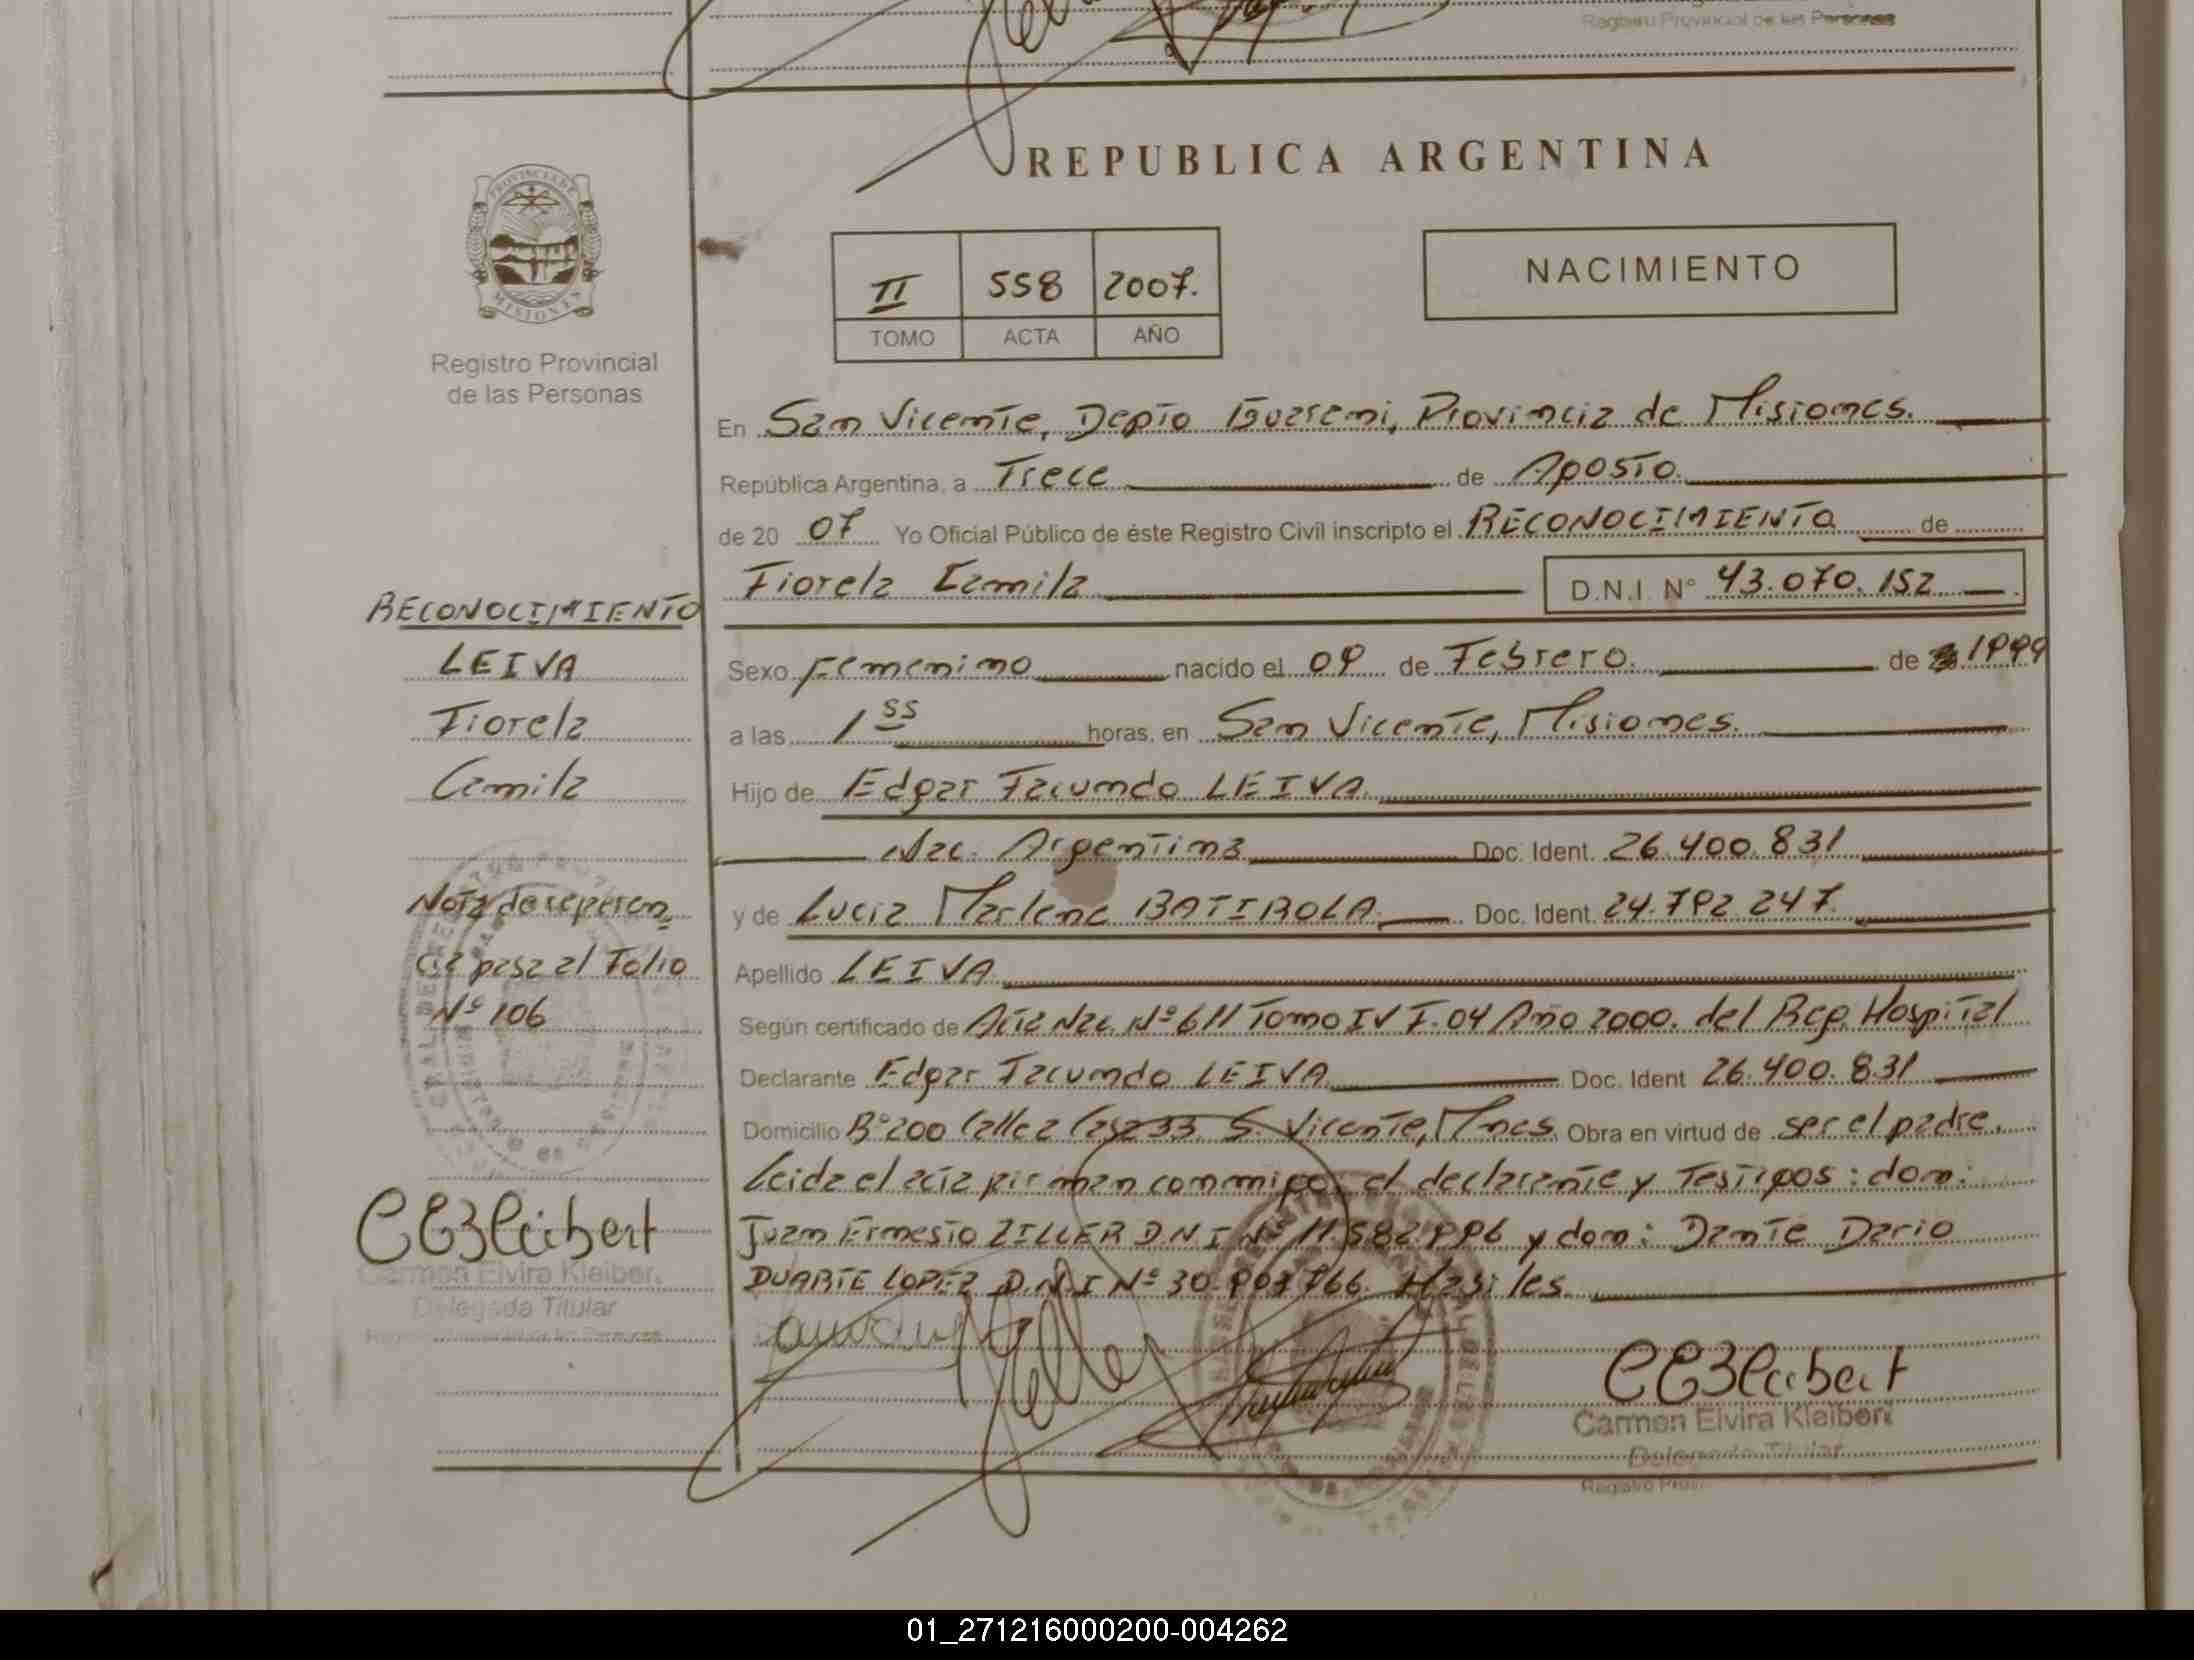 Registro Provincial de las Personas
REPUBLICA ARGENTINA
PROVINCIA DE
MISIONES
Registro Provincial
de las Personas
II 558 2007.
TOMO ACTA AÑO
NACIMIENTO
En San Vicente, Depto Guarani, Provincia de Misiones.
República Argentina, a Trece de Agosto.
de 20 07 Yo Oficial Público de éste Registro Civil inscripto el RECONOCIMIENTO de
Fiorela Camila D.N.I. N° 43.070.152
Sexo Femenino nacido el 09 de Febrero. de 1999
a las 1 55 horas, en San Vicente, Misiones.
Hijo de Edgar Facundo LEIVA
Nac. Argentina Doc. Ident. 26.400.831
y de Lucia Marlene BATIROLA Doc. Ident. 24.792.247.
Apellido LEIVA
Según certificado de Acta Nac. Nº 611 Tomo IV F. 04 Año 2000. del Reg. Hospital
Declarante Edgar Facundo LEIVA Doc. Ident 26.400.831
Domicilio Bº 200 Calle 2 Casa 33 S. Vicente, Mnes. Obra en virtud de ser el padre.
Leida el acta firman conmigo, el declarante y Testigos: don:
Juan Ernesto ZILLER D.N.I Nº 11.582.996 y don: Dante Dario
DUARTE LOPEZ D.N.I Nº
RECONOCIMIENTO
LEIVA
Fiorela
Camila
Nota de referen
cia pasa al Folio
Nº 106
CEKleibert
Carmen Elvira Kleibert
Delegada Titular
CEKleibert
Carmen Elvira Kleibert
Delegada Titular
01_271216000200-004262